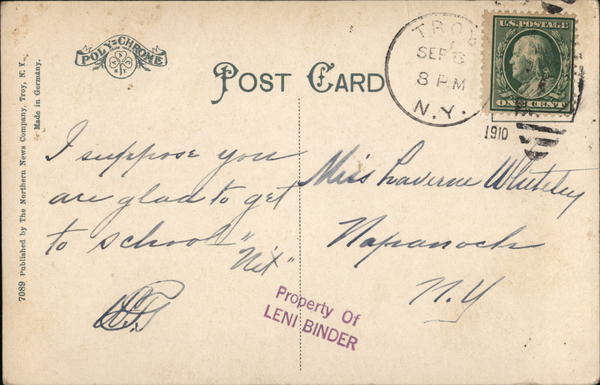 POLY-CHROME
POST CARD
TROY
SEP 6
8 PM
N.Y.
1910
U.S. POSTAGE
ONE CENT
7089 Published by The Northern News Company, Troy, N. Y.
Made in Germany.
I suppose you
are glad to get
to school "Nit"
Miss Laverne Whiteley
Napanoch
N.Y
Property Of
LENI BINDER